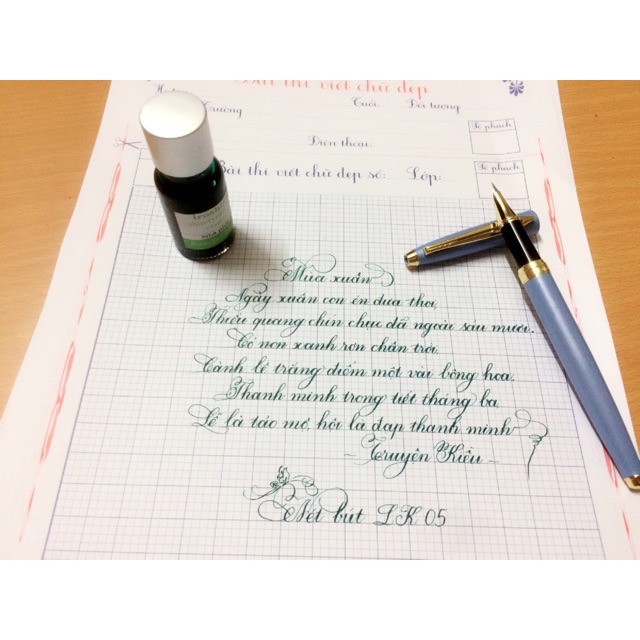 Bài thi viết chữ đẹp
Trường Tuổi: Đối tượng
Điện thoại: Số phách
Bài thi viết chữ đẹp số: Lớp: Số phách
Mùa xuân
Ngày xuân con én đưa thoi,
Thiều quang chín chục đã ngoài sáu mươi.
Cỏ non xanh rợn chân trời,
Cành lê trắng điểm một vài bông hoa.
Thanh minh trong tiết tháng ba,
Lễ là tảo mộ, hội là đạp thanh minh
- Truyện Kiều -
Nét bút LK 05